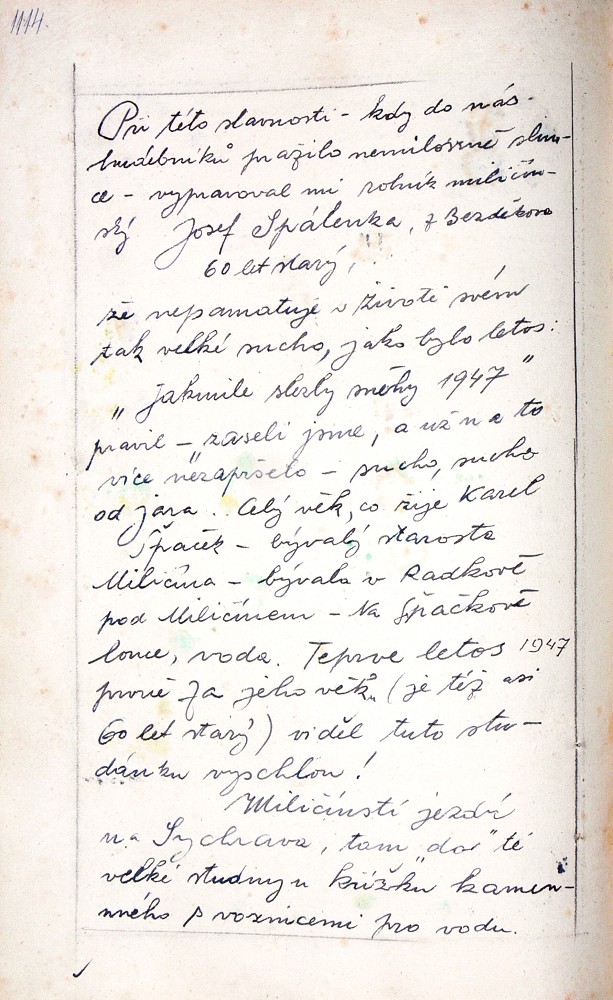 1114.
Při této slavnosti - kdy do nás -
hudebníků pražilo nemilosrně slun-
ce - vypravoval mi rolník miličín-
ský Josef Spálenka, z Bezděkova
60 let starý,
že nepamatuje v životě svém
tak velké sucho, jako bylo letos:
„ jakmile slezly sněhy 1947 "
pravil - „zaseli jsme, a už na to
více nezapršelo - sucho, sucho
od jara.. Celý věk, co žije Karel
Špaček - bývalý starosta
Miličína - bývala v Radkově
pod Miličínem - Na Špačkově
louce, voda. Teprve letos 1947
prvně za jeho věku (je též asi
60 let starý) viděl tuto stu-
dánku vyschlou!
Miličínští jezdí
na Sychrava, tam "do" té
velké studny u křížku kamen-
nného s voznicemi pro vodu.